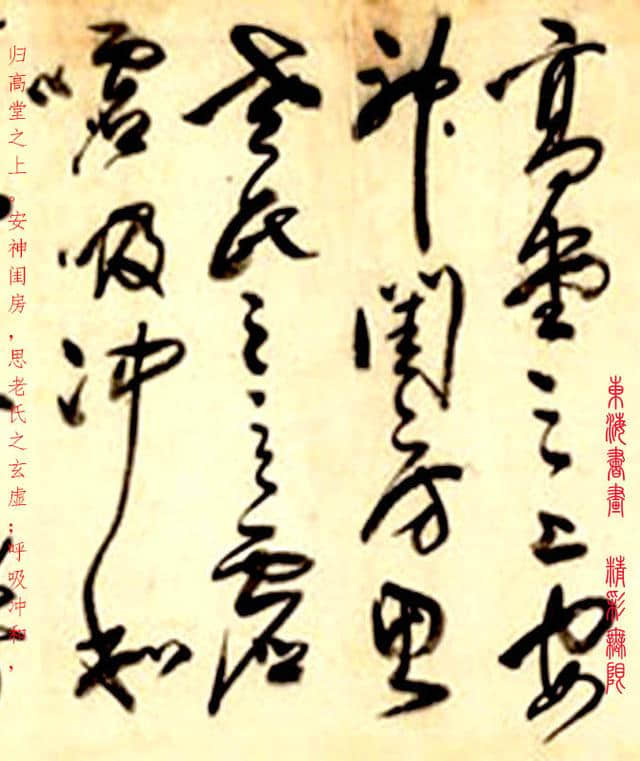 東海書畫 精彩無限
高堂之上安
神閨房思
老氏之玄虛
噓吸冲和
归高堂之上。安神闺房,思老氏之玄虚;呼吸冲和,